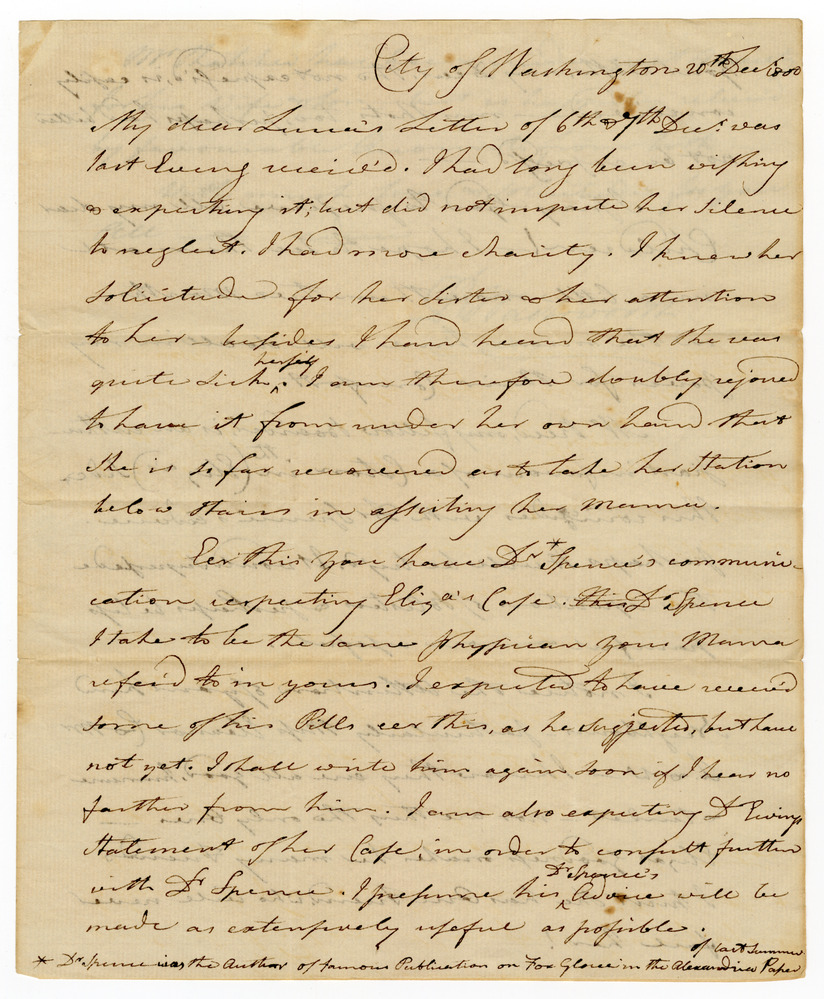 City of Washington 20th Decr 1800
My dear Lucia's Letter of 6th & 7th Decr. was
last Evening receiv'd. I had long been wishing
& expecting it; but did not impute her silence
to neglect. I had more charity. I knew her
solicitude for her Sister & her attention
to her - besides I had heard that she was
quite sick herself. I am therefore doubly rejoiced
to have it from under her own hand that
she is so far recovered as to take her Station
below Stairs in assisting her Mama.
Eer this you have Dr * Spence's communi-
cation respecting Eliza's Case. this Dr Spence
I take to be the same physician your Mama
refer'd to in yours. I expected to have receiv'd
some of his Pills eer this, as he suggested, but have
not yet. I shall write him again soon if I hear no
farther from him. I am also expecting Dr Ewings
Statement of her Case, in order to consult further
with Dr Spence. I presume his Dr Spence's Advice will be
made as extensively useful as possible.
of last Summer
* Dr Spence was the Author of famous Publication on Fox Glove in the Alexandria Paper